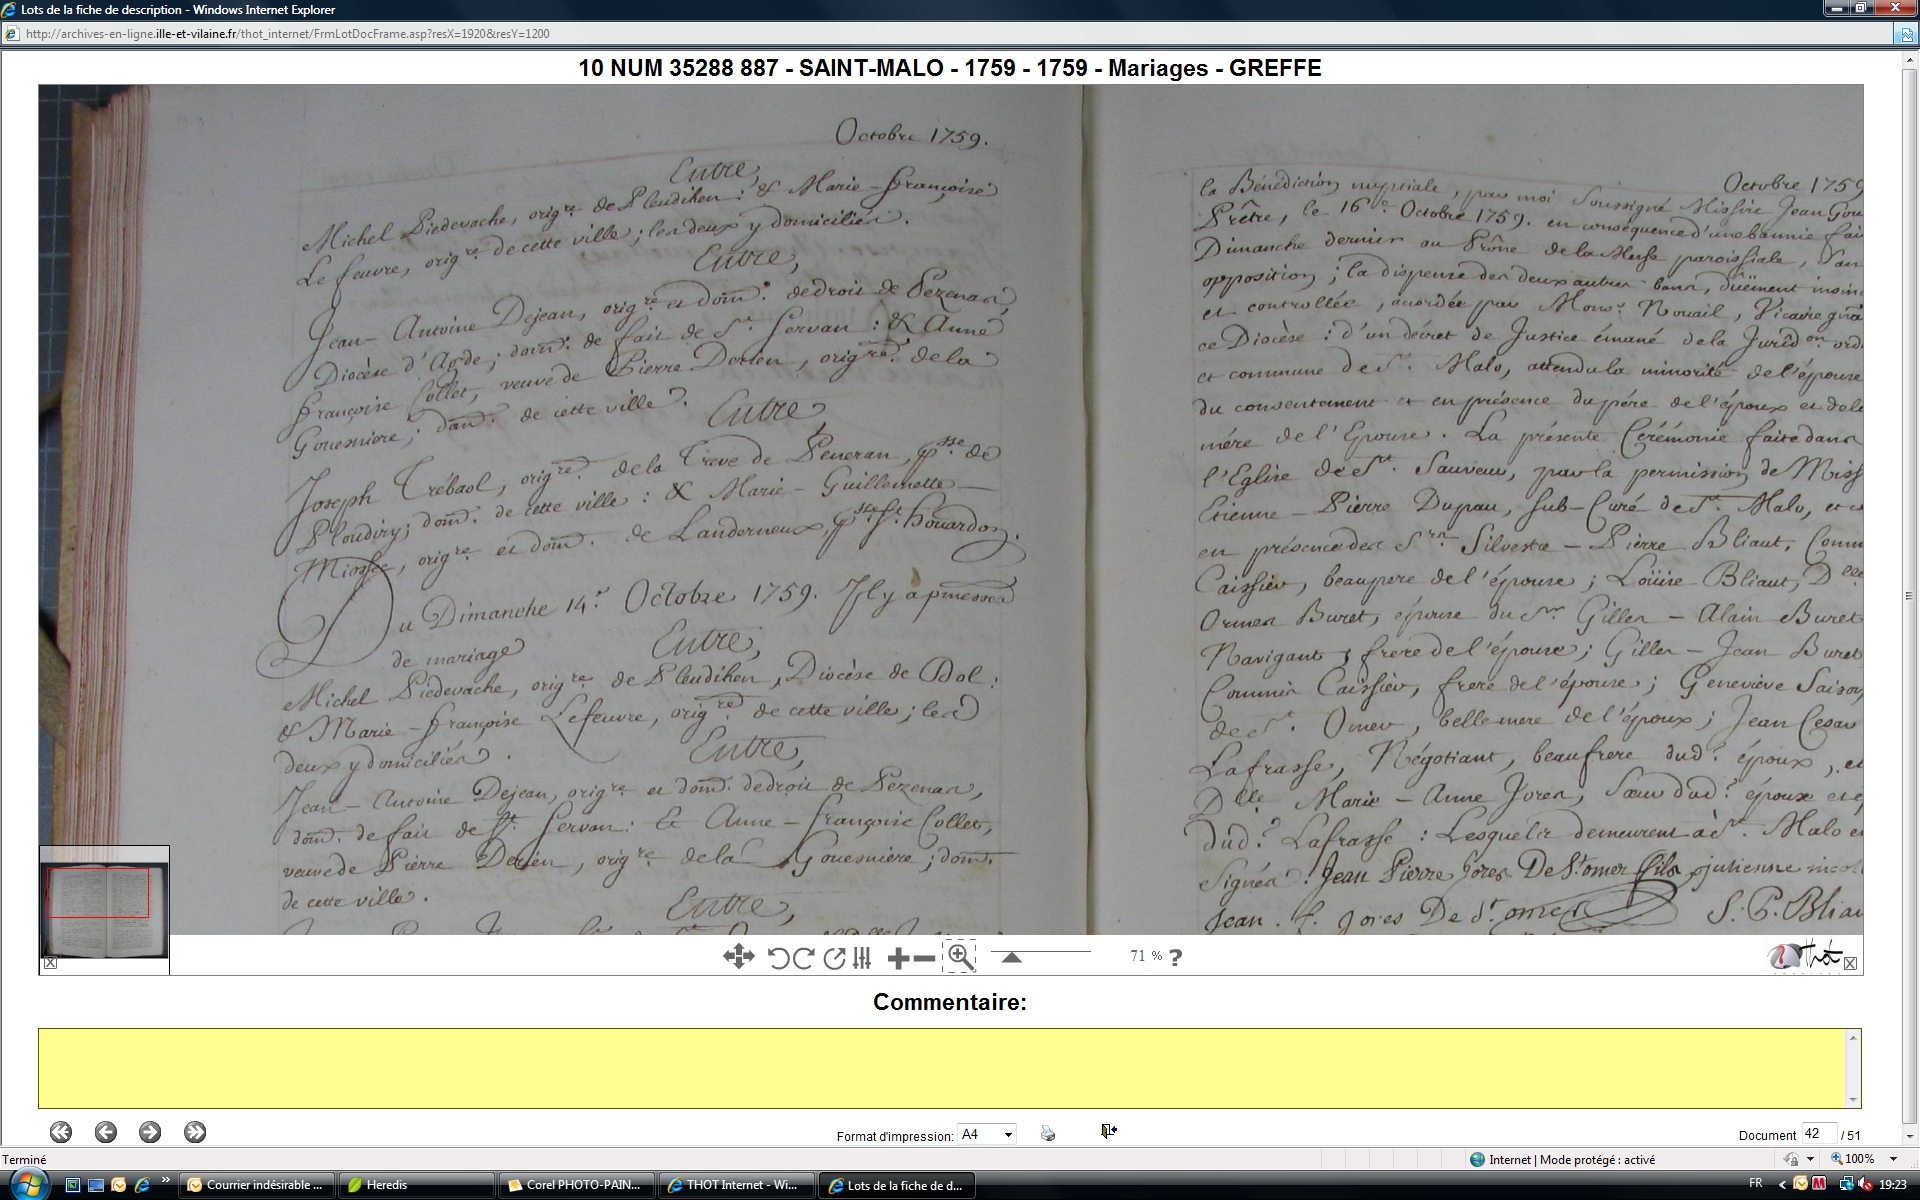 Lots de la fiche de description - Windows Internet Explorer
http://archives-en-ligne.ille-et-vilaine.fr/thot_internet/FrmLotDocFrame.asp?resX=1920&resY=1200
10 NUM 35288 887 - SAINT-MALO - 1759 - 1759 - Mariages - GREFFE
Octobre 1759.
Entre,
Michel Piedevache, orig.re de Pleudihen : & Marie-Françoise
Le feuvre, orig.re de cette ville ; les deux y domiciliés.
Entre,
Jean-Antoine Dejean, orig.re et dom.é de droit de Pezenas,
Diocèse d'Agde ; dom.é de fait de St. Servan : & Anne
Françoise Collet, veuve de Pierre Derien, orig.re de la
Gouesniere ; dom.é de cette ville.
Entre,
Joseph Trébaol, orig.re de la Treve de Peneran, p.sse de
Ploudiry ; dom.é de cette ville : & Marie-Guillemette
Miossec, orig.re et dom.é de Landerneux, p.sse St. houardon.
Du Dimanche 14.e Octobre 1759. Il y a promesses
de mariage
Entre,
Michel Piedevache, orig.re de Pleudihen, Diocèse de Dol :
& Marie-Françoise Lefeuvre, orig.re de cette ville ; les
deux y domiciliés.
Entre,
Jean-Antoine Dejean, orig.re et dom.é de droit de Pezenas,
dom.é de fait de St. Servan : & Anne-Françoise Collet,
veuve de Pierre Derien, orig.re de la Gouesniere ; dom.é
de cette ville.
Entre,
Octobre 1759
la Bénédiction nuptiale, par moi Soussigné Missire Jean Gou
Prêtre, le 16.e Octobre 1759. en conséquence d'une bannie fai
Dimanche dernier au Prône de la Messe paroissiale, San
opposition ; la dispense des deux autres bans, düement insin
et controllée, acordée par Mons.r Nouail, Vicaire gñâ
ce Diocèse : d'un décret de Justice émané de la Jurid.on ord
et commune de St. Malo, attendu la minorité de l'épouse
du consentement et en présence du pére de l'époux et de la
mére de l'Epouse. La présente Cerémonie faite dans
l'Eglise de St. Sauveur, par la permission de Miss
Etienne-Pierre Dupau, Sub-Curé de St. Malo, et a
en présence des Srs Silvestre-Pierre Bliaut, Comm
Caissier, beaupere de l'épouse ; Loüise-Bliaut, Dlle
Buret, épouse du Sr Gilles-Alain Buret
Navigant, frere de l'épouse ; Gilles-Jean Buret
Commis Caissier, frere de l'épouse ; Geneviève Saison
de St. Omer, belle mere de l'époux ; Jean Cesar
Lafrasse, Négotiant, beaufrere dud.t époux, et
Dlle Marie-Anne Jorès, Sœur dud.t époux et é
dud.t Lafrasse : Lesquels demeurent à St. Malo et
signés. Jean Pierre Jores De St omer fils, julienne nicol
Jean. f. Jores De St. omer S. P. Bliau
71 %
?
Thot
Commentaire:
Format d'impression: A4
Document 42 / 51
Terminé
Internet | Mode protégé : activé
100%
Courrier indésirable ...
Heredis
Corel PHOTO-PAIN...
THOT Internet - Wi...
Lots de la fiche de d...
FR
19:23